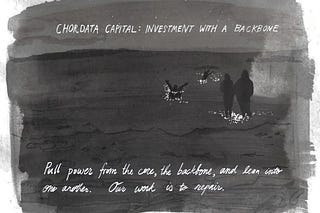 CHORDATA CAPITAL: INVESTMENT WITH A BACKBONE
Pull power from the core, the backbone, and lean into
one another. Our work is to repair.